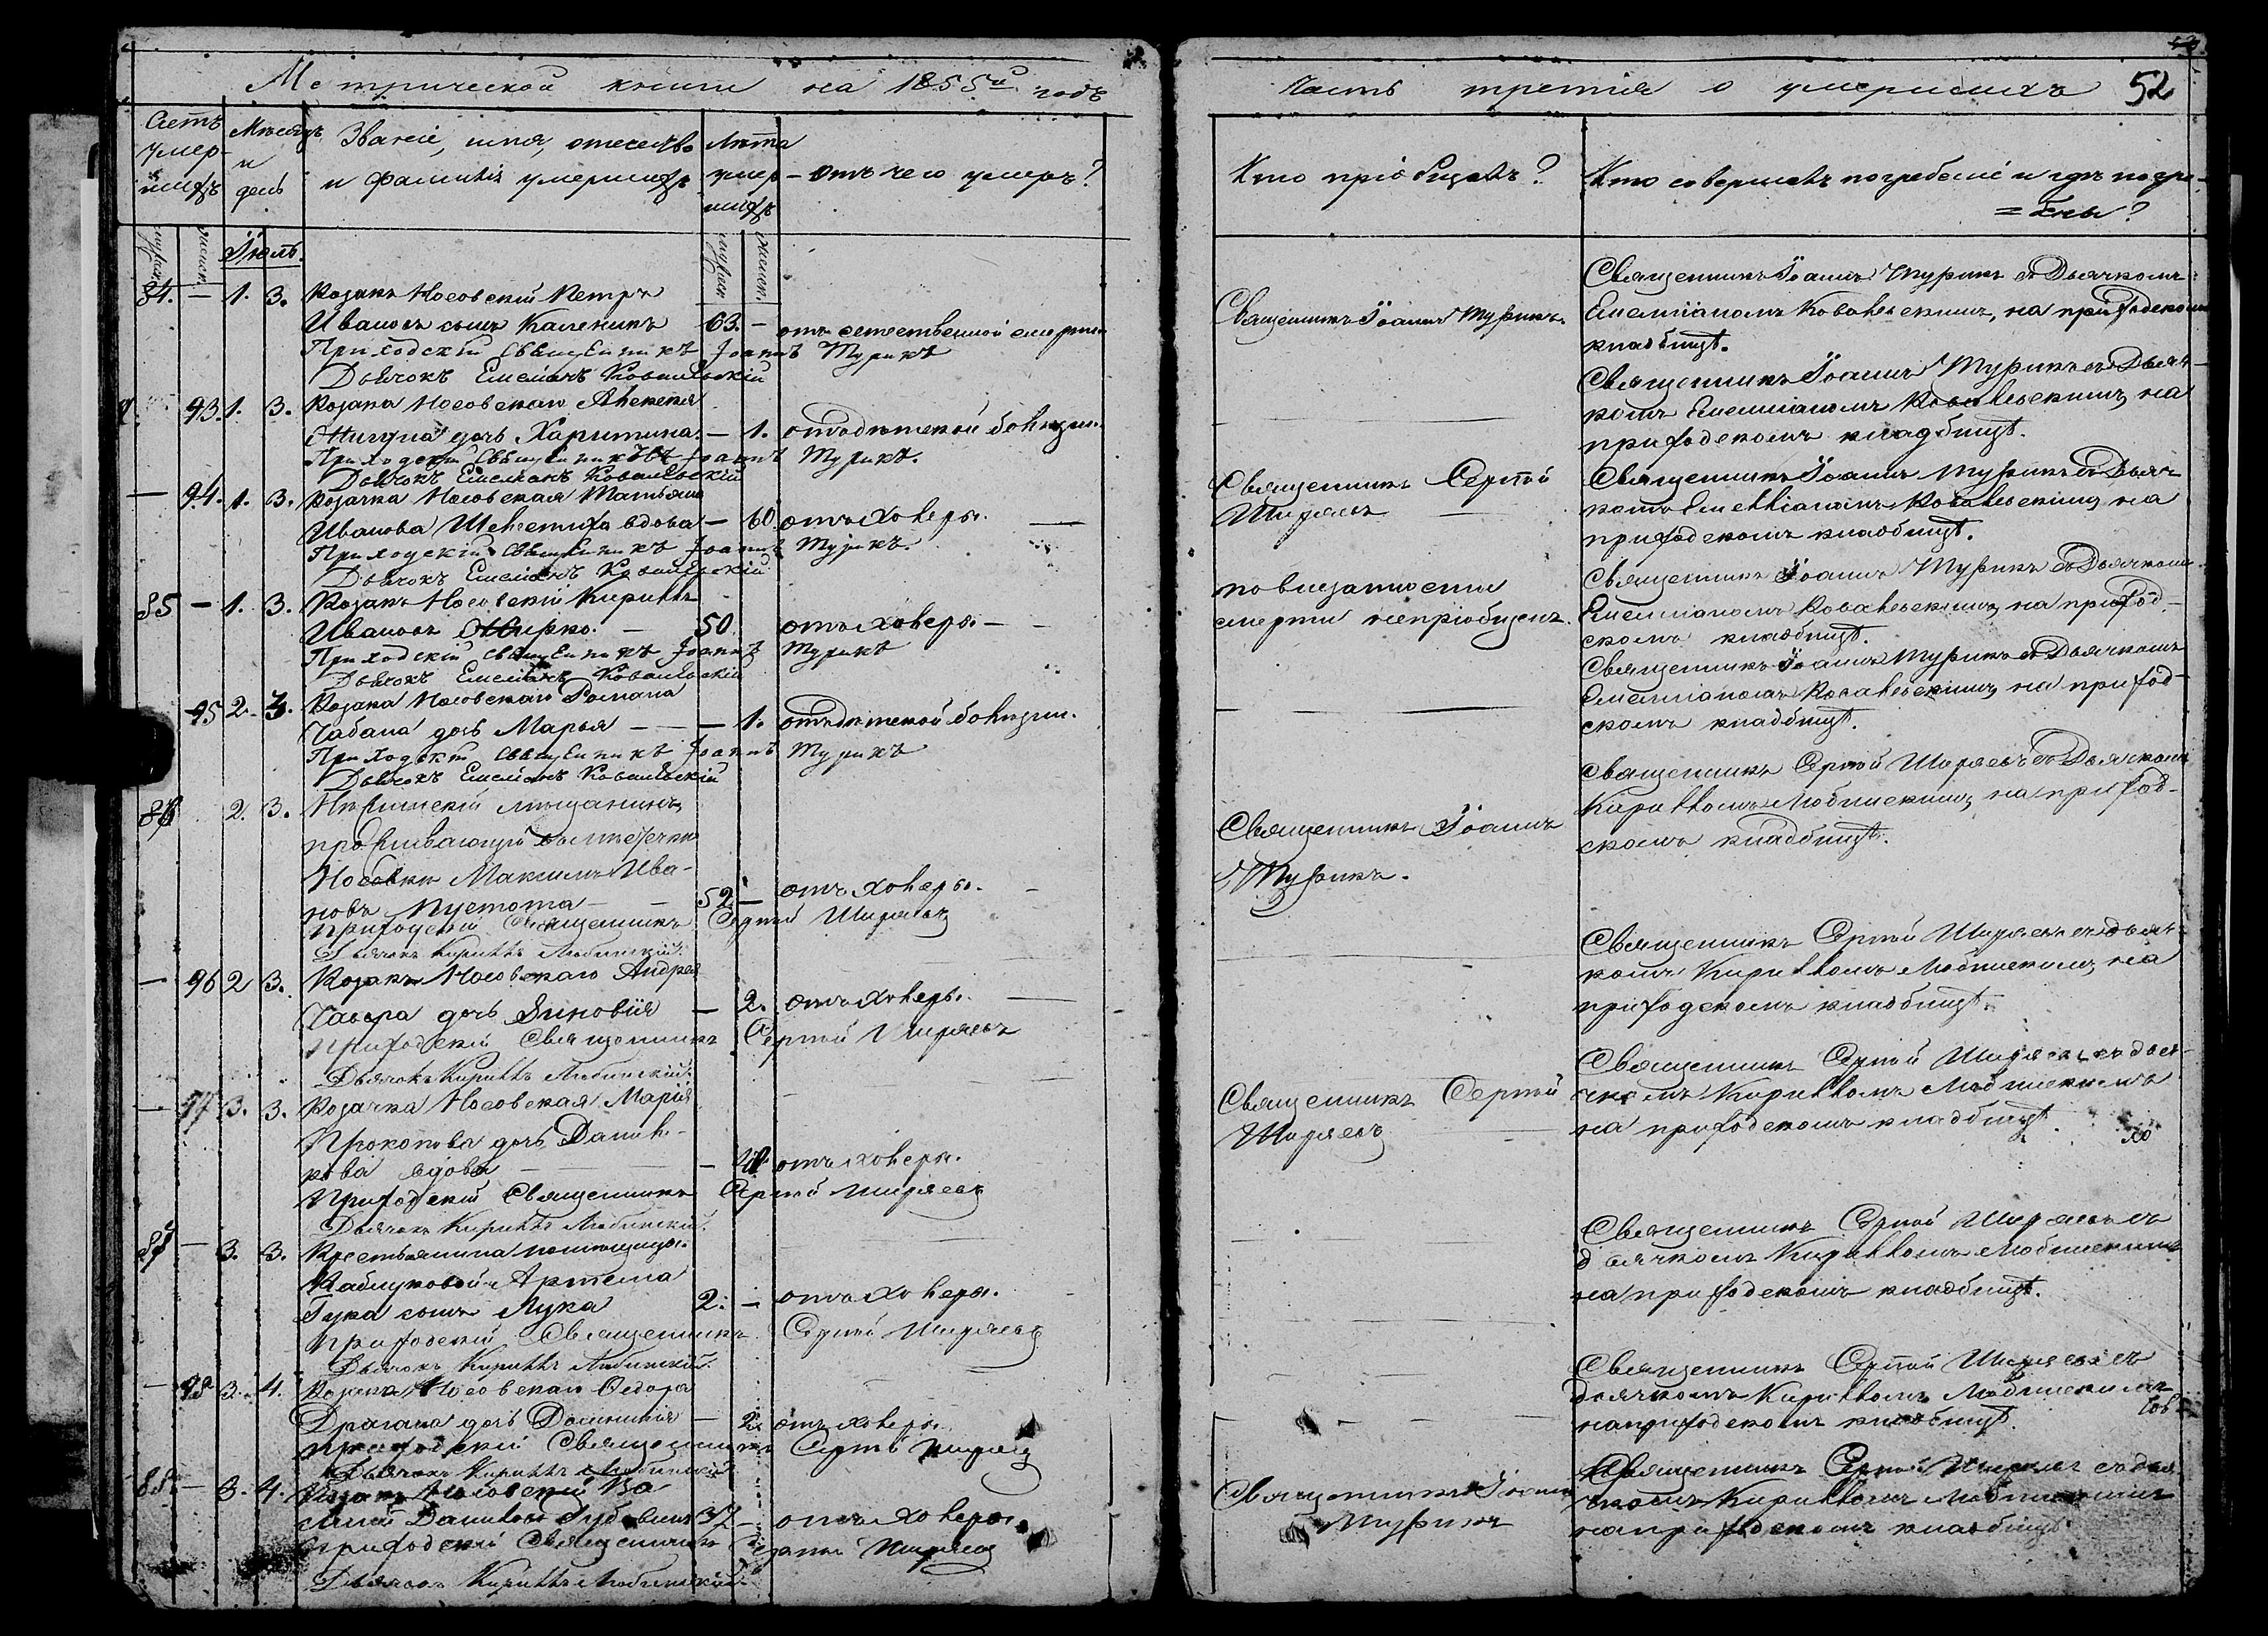 Метрической книги на 1855й годъ
Счетъ умер-шихъ
Мѣсяцъ и день
Званіе, имя, отечество
и фамилія умершихъ
Лѣта умер-шихъ
отъ чего умеръ?
мужеск. женск.
Іюль.
мужеск. женск.
84. — 1. 3. Козакъ Носовскій Петръ
Ивановъ сынъ Каленикъ 63. — отъ естественной смерти
Приходскій Священникъ Іоаннъ Турикъ
Дьячокъ Емелiанъ Ковалевскій
93. 1. 3. Козака Носовскаго Алексея
дочь Харитина. — 1. отъ дѣтской болѣзни.
Приходскій Священникъ Іоаннъ Турикъ.
Дьячокъ Емелiанъ Ковалевскій
— 94. 1. 3. Козачка Носовская Татьяна
Иванова вдова — 60. отъ холеры. —
Приходскій Священникъ Іоаннъ Турикъ.
Дьячокъ Емелiанъ Ковалевскій
85 — 1. 3. Козакъ Носовскій Кириллъ
Ивановъ — 50. отъ холеры — —
Приходскій Священникъ Іоаннъ Турикъ
Дьячокъ Емелiанъ Ковалевскій
95 2. 3. Козака Носовскаго Романа
Чабана дочь Марья — — 1. отъ дѣтской болѣзни.
Приходскій Священникъ Іоаннъ Турикъ
Дьячокъ Емелiанъ Ковалевскій
86 2. 3. Нѣжинскій мѣщанинъ,
проживающій въ мѣстечкѣ
Носовки Максимъ Ива-
новъ Пустота — — 52. — отъ холеры. —
Приходскій Священникъ Сергій Ширяевъ
Дьячокъ Кириллъ Любинскій.
— 96 2 3. Козака Носовскаго Андрея
дочь Зиновія — 2. отъ холеры. —
Приходскій Священникъ Сергій Ширяевъ
Дьячокъ Кириллъ Любинскій.
— 97 3. 3. Козачка Носовская Марія
Прокопова дочь Данил-
кова вдова — — отъ холеры.
Приходскій Священникъ Сергій Ширяевъ
Дьячокъ Кириллъ Любинскій.
87 — 3. 3. Крестьянина помѣщицы
Каблуковой Артема
Гука сынъ Лука 2. — отъ холеры.
Приходскій Священникъ Сергій Ширяевъ
Дьячокъ Кириллъ Любинскій.
— 98 3. 4. Козака Носовскаго Федора
Драгана дочь Домникія — 2. отъ холеры.
Приходскій Священникъ Сергій Ширяевъ
Дьячокъ Кириллъ Любинскій
88. — 3. 4. Козакъ Носовскій Ва-
силій Даниловъ 37 — отъ холеры.
Приходскій Священникъ Сергій Ширяевъ
Дьячокъ Кириллъ Любинскій.
Часть третія о умершихъ 52
Кто пріобщалъ?
Кто совершалъ погребеніе и гдѣ погре-
=бены?
Священникъ Іоаннъ Турикъ.
Священникъ Іоаннъ Турикъ съ Дьячкомъ
Емелiаномъ Ковалевскимъ, на приходскомъ
кладбищѣ.
—
Священникъ Іоаннъ Турикъ съ Дьяч-
комъ Емелiаномъ Ковалевскимъ, на
приходскомъ кладбищѣ.
Священникъ Сергій
Ширяевъ —
Священникъ Іоаннъ Турикъ съ Дьяч
комъ Емелiаномъ Ковалевскимъ, на
приходскомъ кладбищѣ.
по внезапности
смерти непріобщенъ.
Священникъ Іоаннъ Турикъ съ Дьячкомъ
Емелiаномъ Ковалевскимъ, на приход-
скомъ кладбищѣ.
—
Священникъ Іоаннъ Турикъ съ Дьячкомъ
Емелiаномъ Ковалевскимъ, на приход-
скомъ кладбищѣ.
Священникъ Іоаннъ
Турикъ.
Священникъ Сергій Ширяевъ съ Дьячкомъ
Кирилломъ Любинскимъ, на приход-
скомъ кладбищѣ.
—
Священникъ Сергій Ширяевъ съ дьяч-
комъ Кирилломъ Любинскимъ, на
приходскомъ кладбищѣ.
Священникъ Сергій
Ширяевъ —
Священникъ Сергій Ширяевъ съ дья-
чкомъ Кирилломъ Любинскимъ
на приходскомъ кладбищѣ.
—
Священникъ Сергій Ширяевъ съ
дьячкомъ Кирилломъ Любинскимъ
на приходскомъ кладбищѣ.
—
Священникъ Сергій Ширяевъ съ
дьячкомъ Кирилломъ Любинскимъ
на приходскомъ кладбищѣ.
Священникъ Іоаннъ
Турикъ
Священникъ Сергій Ширяевъ съ дья-
чкомъ Кирилломъ Любинскимъ
на приходскомъ кладбищѣ.